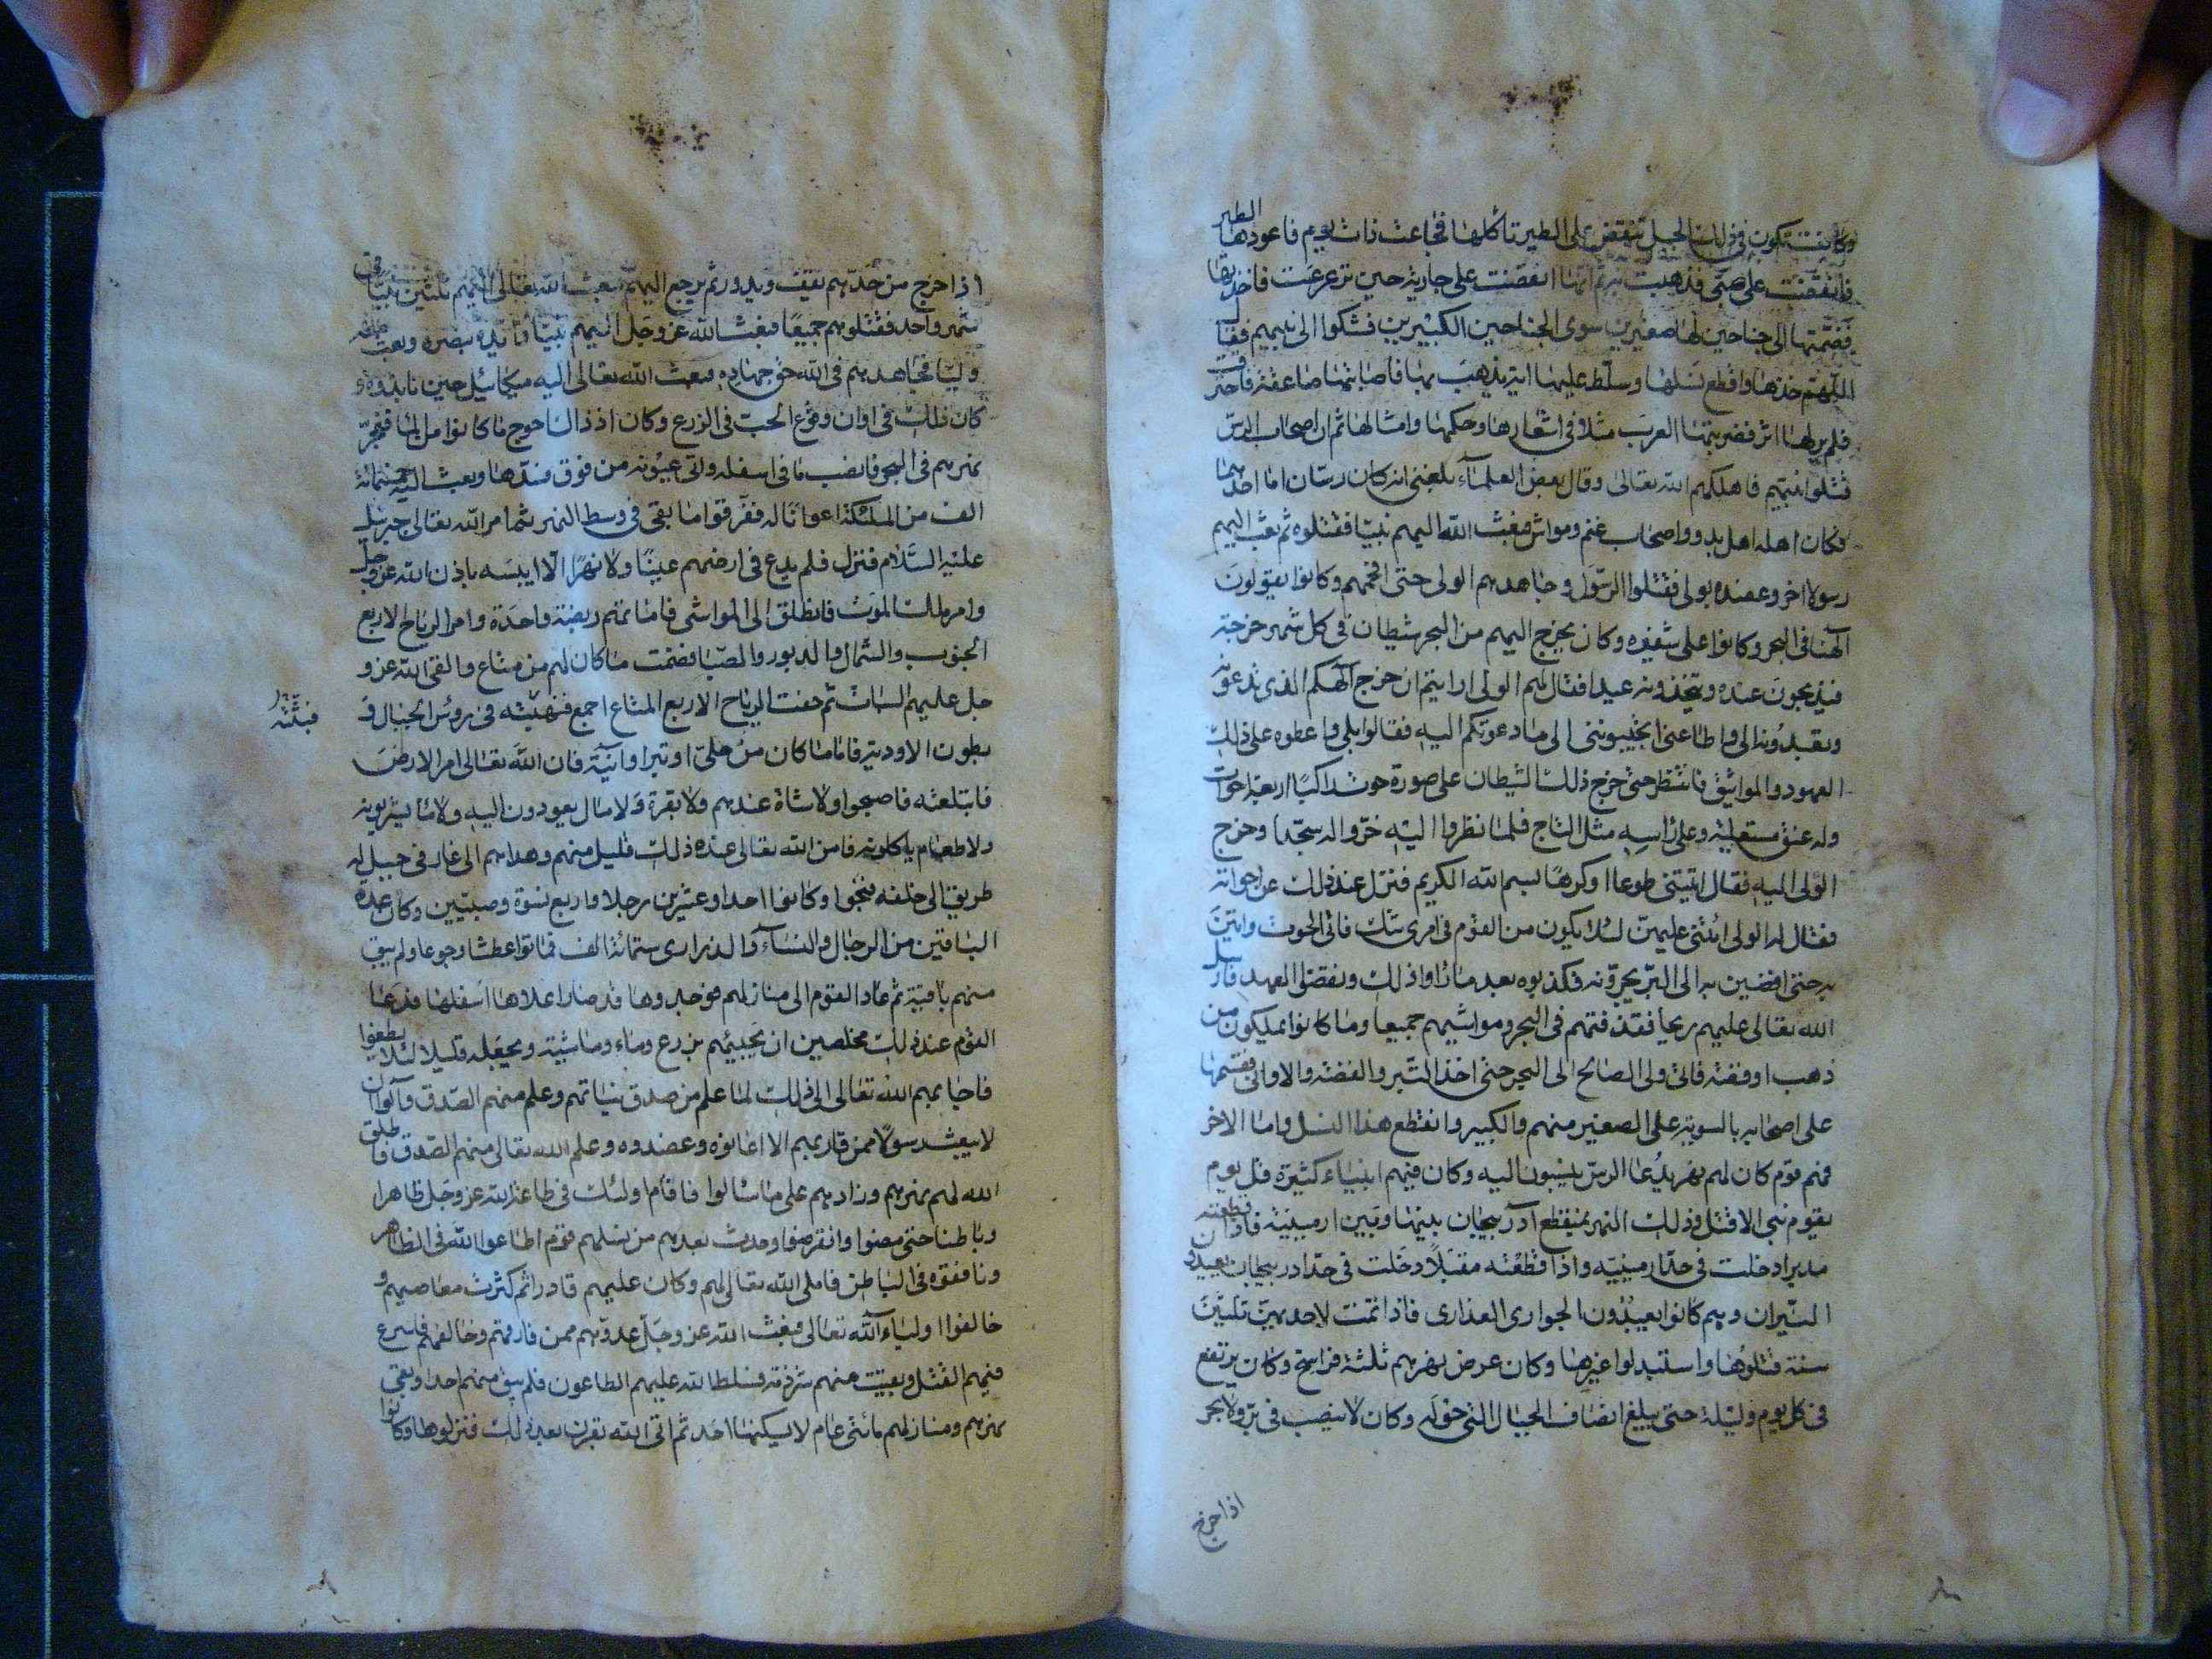 وكانت تكون في ذلك الجبل تنقض على الطير تأكلها فجاعت ذات يوم فاعوزها الطير
فانقضت على صبي فذهبت به ثم انها انقضت على جارية حين ترعرعت فاخذتها
فضمتها الى جناحين لها صغيرين سوى الجناحين الكبيرين فشكوا الى نبيهم فقال
اللهم خذها واقطع نسلها وسلط عليها اية يذهب بها فاصابتها صاعقة فاحترقت
فلم ير لها اثر فضربتها العرب مثلا في اشعارها وحكمها وامثالها ثم ان اصحاب الرس
قتلوا نبيهم فاهلكهم الله تعالى وقال بعض العلماء بلغني انه كان رسان اما احدهما
فكان اهله اهل بدو واصحاب غنم ومواش فبعث الله اليهم نبيا فقتلوه ثم بعث اليهم
رسولا اخر وعضده بولي فقتلوا الرسول وجاهدهم الولي حتى افحمهم وكانوا يقولون
الهنا في البحر وكانوا على شفيره وكان يخرج اليهم من البحر شيطان في كل شهر خرجة
فيذبحون عنده ويتخذونه عيدا فقال لهم الولي ارايتم ان خرج الهكم الذي تدعونه
وتعبدونه الي واطاعني اتجيبونني الى ما دعوتكم اليه فقالوا بلى واعطوه على ذلك
العهود والمواثيق فانتظر حتى خرج ذلك الشيطان على صورة حوت راكبا اربعة احوات
وله عنق مستعلية وعلى راسه مثل التاج فلما نظروا اليه خروا له سجدا وخرج
الولي اليه فقال ائتني طوعا او كرها بسم الله الكريم فنزل عند ذلك عن احواته
فقال له الولي ائتني عليهن لئلا يكون من القوم في امري شك فاتى الحوت واتين
به حتى افضين به الى البر يجرونه فكذبوه بعد ما راوا ذلك ونقضوا العهد فارسل
الله تعالى عليهم ريحا فقذفتهم في البحر ومواشيهم جميعا وما كانوا يملكون من
ذهب او فضة فاتى ولي الصالح الى البحر حتى اخذ التبر والفضة والاواني فقسمها
على اصحابه بالسوية على الصغير منهم والكبير وانقطع هذا النسل واما الاخر
فهم قوم كان لهم نهر يدعا الرس ينسبون اليه وكان فيهم انبياء كثيرة قل يوم
يقوم نبي الا قتل وذلك النهر بمنقطع آذربيجان بينها وبين ارمينية فاذا قطعته
مدبرا دخلت في حد ارمينيه واذا قطعته مقبلا دخلت في حد اذربيجان يعبدون
النيران وهم كانوا يعبدون الجواري العذارى فاذا تمت لاحديهن ثلثين
سنة قتلوها واستبدلوا غيرها وكان عرض نهرهم ثلثة فراسخ وكان يرتفع
في كل يوم وليلة حتى يبلغ انصاف الجبال التي حوله وكان لا ينصب في بر ولا بحر
اذا خرج
اذا خرج من حدهم يقف ويدور ثم يرجع اليهم فبعث الله تعالى اليهم ثلثين نبيا في
شهر واحد فقتلوهم جميعا فبعث الله عز وجل اليهم نبيا وايده بنصره وبعث معه
وليا فجاهدهم في الله حق جهاده فبعث الله تعالى اليه ميكائيل حين نابذوه و
كان ذلك في اوان وقوع الحب في الزرع وكان اذ ذاك احوج ما كانوا من الماء ففجر
نهرهم في البحر فانصب ما في اسفله واتى عيونه من فوق فسدها وبعث اليه خمسمائة
الف من الملئكة اعوانا له ففرقوا ما بقي في وسط النهر ثم امر الله تعالى جبرئيل
عليه السلام فنزل فلم يدع في ارضهم عينا ولا نهرا الا ايبسه باذن الله عز وجل
وامر ملك الموت فانطلق الى المواشي فاماتهم ربضة واحدة وامر الرياح الاربع
الجنوب والشمال والدبور والصبا فضمت ما كان لهم من متاع والقى الله عز و
جل عليهم السبات ثم حفت الرياح الاربع المتاع اجمع فنهبته في رؤس الجبال و
فبثته
بطون الاودية فاما ما كان من حلي او تبر او انية فان الله تعالى امر الارض
فابتلعته فاصبحوا ولا شاة عندهم ولا بقرة ولا مال يعودون اليه ولا ماء يشربونه
ولا طعام ياكلونه فامن الله تعالى عنده ذلك قليل منهم وهداهم الى غار في جبل له
طريق الى خلفه فنجوا وكانوا احدا وعشرين رجلا واربع نسوة وصبيين وكان عدة
الباقين من الرجال والنساء والذراري ستمائة الف فماتوا عطشا وجوعا ولم يبق
منهم باقية ثم عاد القوم الى منازلهم فوجدوها قد صار اعلاها اسفلها فدعا
القوم عند ذلك مخلصين ان يجيئهم بزرع وماء وماشية ويجعله قليلا لئلا يطغوا
فاجابهم الله تعالى الى ذلك لما علم من صدق نياتهم وعلم منهم الصدق وآلوا ان
لا يبعث رسولا ممن قاربهم الا اعانوه وعضدوه وعلم الله تعالى منهم الصدق فاطلق
الله لهم نهرهم وزادهم على ما سالوا فاقام اولئك في طاعة الله عز وجل ظاهرا
وباطنا حتى مضوا وانقرضوا وحدث بعدهم من نسلهم قوم اطاعوا الله في الظاهر
ونافقوه في الباطن فاملى الله تعالى لهم وكان عليهم قادرا ثم كثرت معاصيهم و
خالفوا اولياء الله تعالى فبعث الله عز وجل عدوهم ممن فارقهم وخالفهم فاسرع
فيهم القتل وبقيت منهم شرذمة فسلط الله عليهم الطاعون فلم يبق منهم احد وبقي
نهرهم ومنازلهم مائتي عام لا يسكنها احد ثم اتى الله بقرن بعد ذلك فنزلوها وكانوا